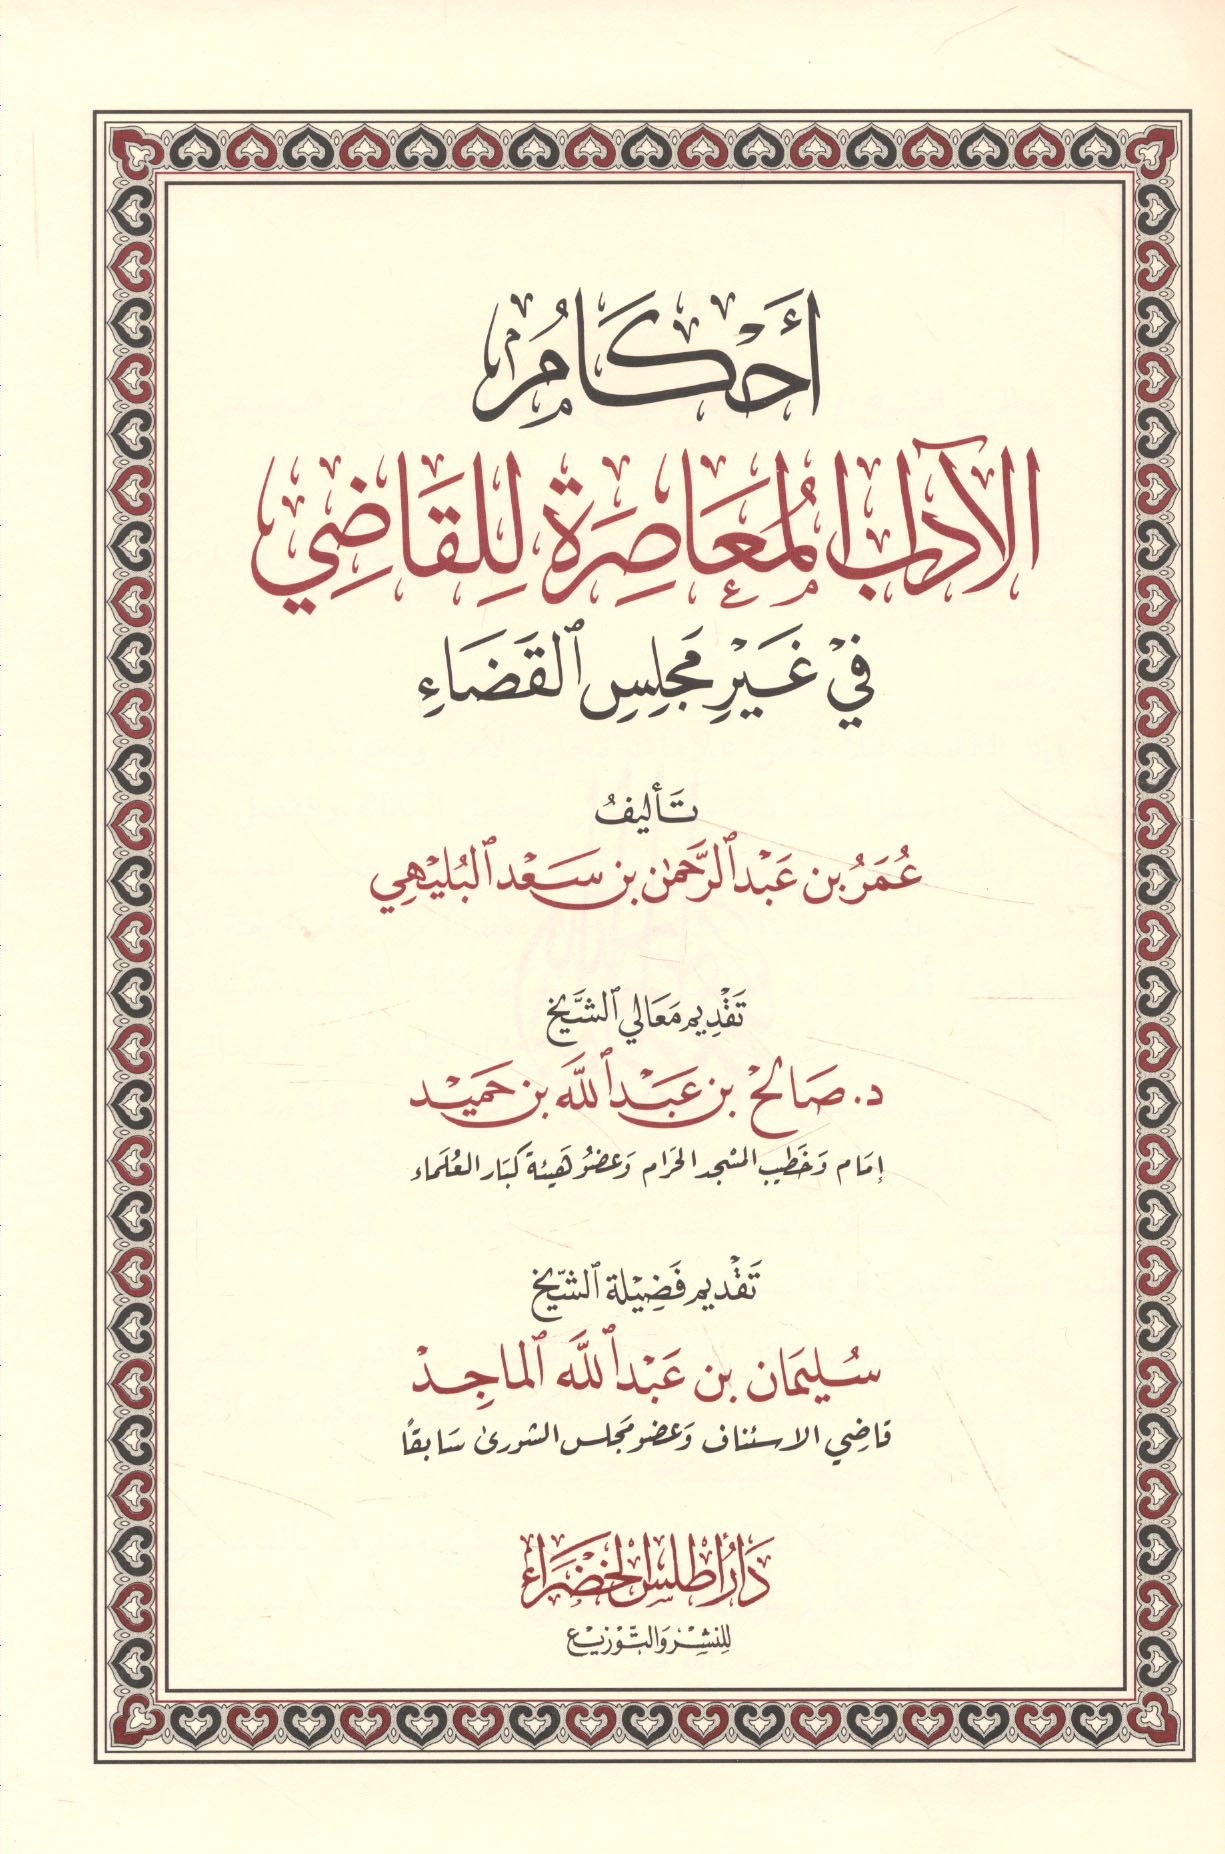 أَحْكَامُ
الآدَابِ المُعَاصِرَةِ لِلْقَاضِي
فِي غَيْرِ مَجْلِسِ القَضَاءِ
تَأليفُ
عُمَرُ بن عَبْدالرَّحمٰن بن سَعْد البُلَيْهِي
تَقْدِيم مَعَالي الشَّيْخ
د. صَالحْ بن عَبْدالله بن حَميْد
إمَام وَخَطيب المسْجد الحَرام وَعضوُ هَيئة كبَار العُلَماء
تَقْديم فَضِيْلة الشّيْخ
سُليمَان بن عَبْدالله الماجِدْ
قاضِي الاستئناف وَعضو مَجلس الشورىٰ سَابقاً
دَارُ أطْلس الخَضْرَاء
للنشْر وَالتّوْزيْع